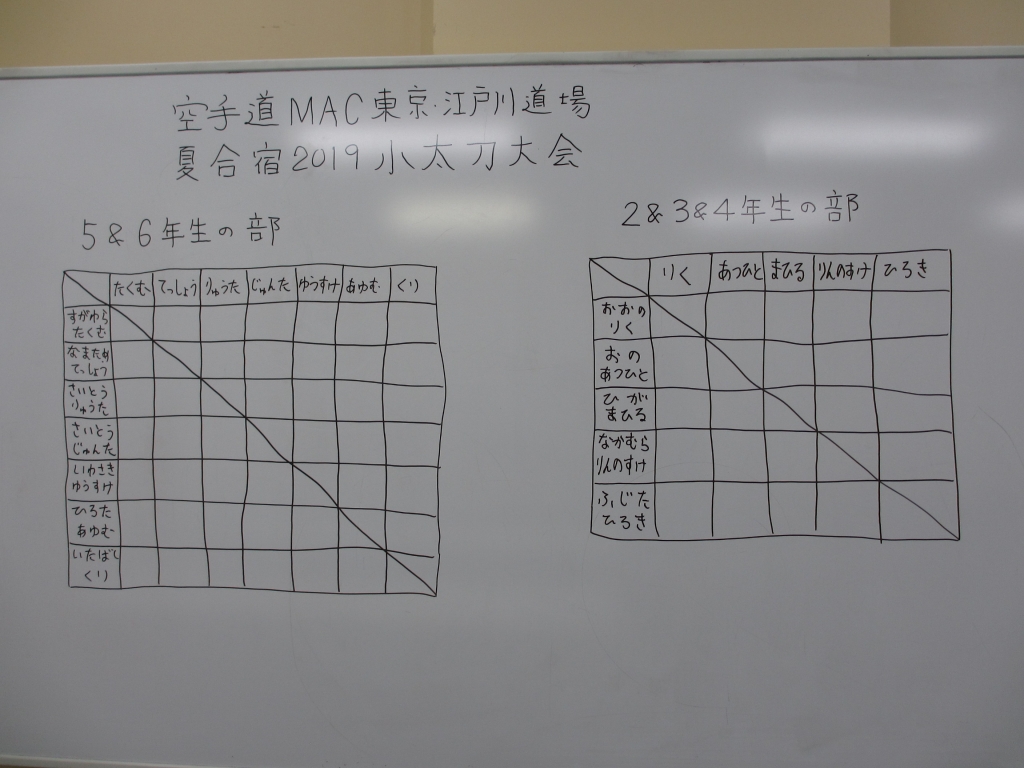 空手道MAC東京・江戸川道場
夏合宿2019小太刀大会
5&6年生の部
たくむ てっしょう りゅうた じゅんた ゆうすけ あゆむ くり
すがゆら
たくむ
なまため
てっしょう
さいとう
りゅうた
さいとう
じゅんた
いわさき
ゆうすけ
ひろた
あゆむ
いたばし
くり
2&3&4年生の部
りく あつひと まひる りんのすけ ひろき
おおの
りく
おの
あつひと
ひが
まひる
なかむら
りんのすけ
ふじた
ひろき